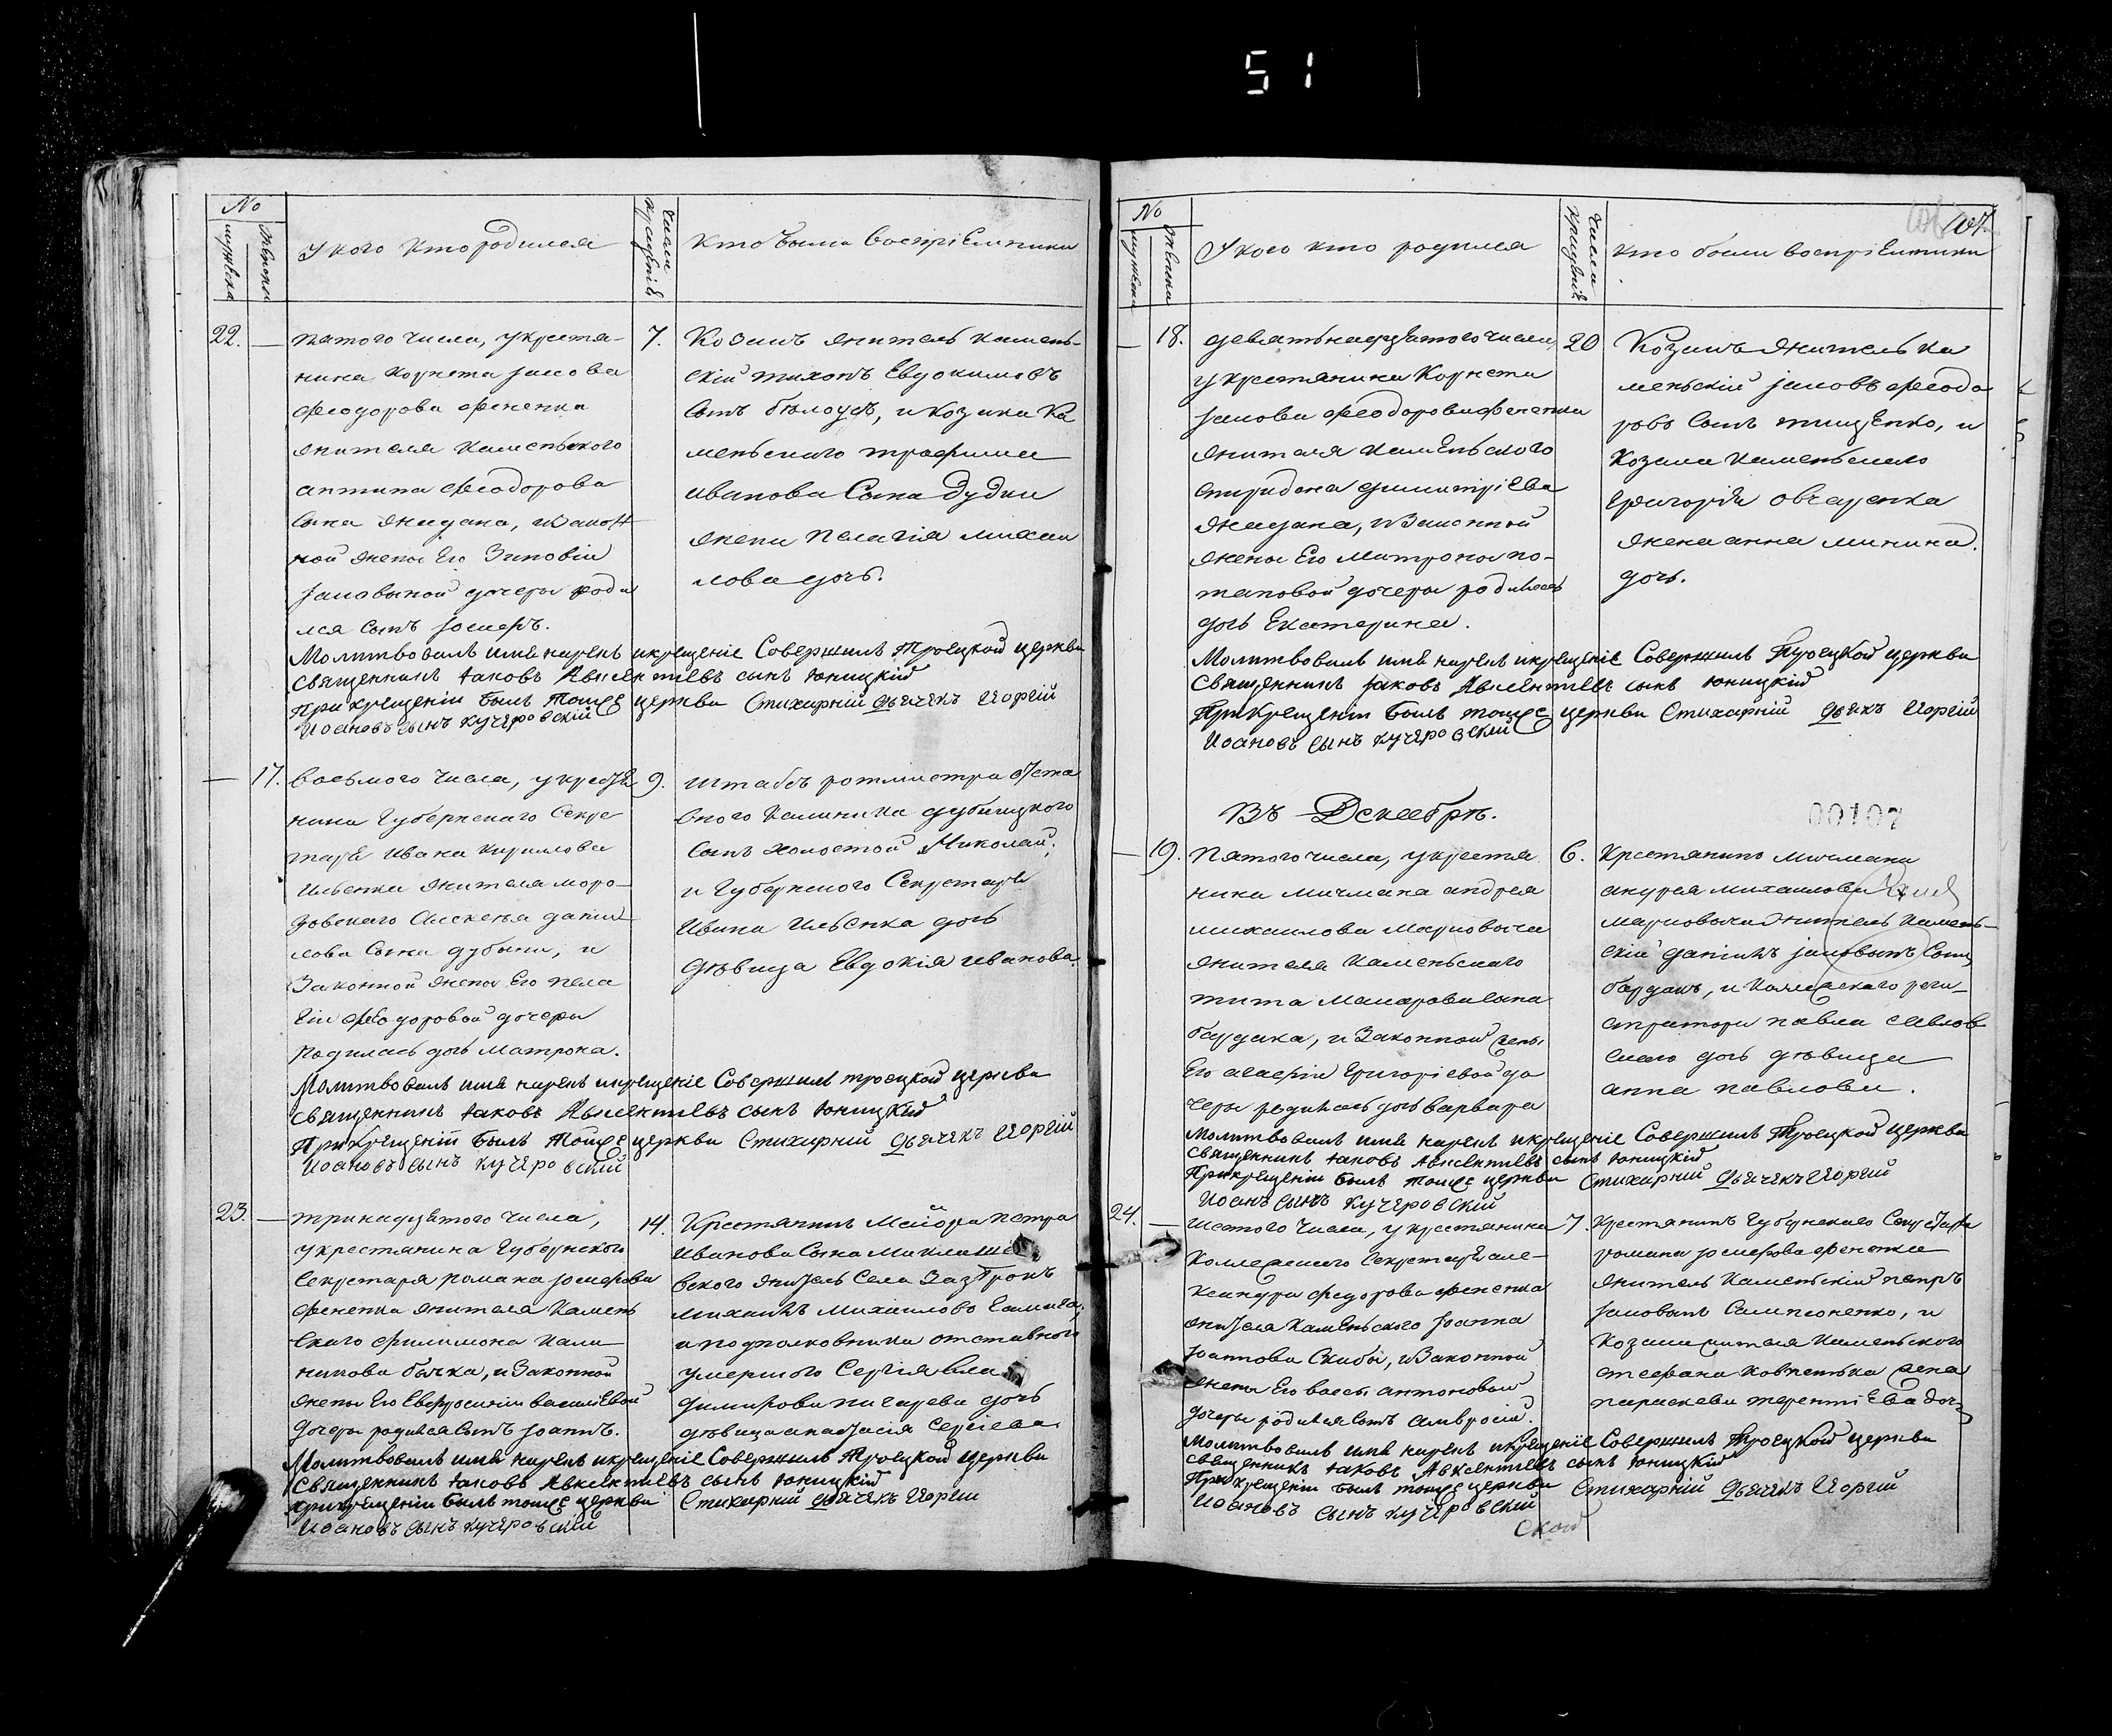 51
No
мужеска
женска
У кого кто родился
Числа
крещенія
Кто были воспріемники
22.
пятого числа, у крестя-
нина Корнета Іакова
Феодорова Фененка
жителя Каменского
Антипа Феодорова
сына Жадана, и закон-
ной жены Его Зиновіи
Іаковыной дочеры роди
лся сынъ Іосифъ.
7.
Козакъ житель камень-
скій тихонъ Евдокимовъ
сынъ бѣлоусъ, и козака Ка
меньскаго трофима
иванова Сына Дудки
жена Пелагія михаи
лова дочь.
Молитвовалъ имя нарекъ и крещеніе Совершилъ Троецкой церкви
священникъ Іаковъ Авксентіевъ сынъ Юницкій
При крещеніи былъ тоиже церкви Стихарній дьячекъ Георгій
Иоановъ сынъ кучеровскій
17.
восьмого числа, у крестья
нина Губернскаго Секре
таря Ивана Кирилова
Ильенка жителя моро-
зовского Алексея даніи
лова сына дубыни, и
Законной жены Его пела
гіи Феодоровой дочеры
родилась дочь Матрона.
9.
штабсъ ротмистра отста
вного Калиника дубицкого
сынъ холостой Николай,
и Губернского Секретаря
Ивана Ильенка дочь
дѣвица Евдокія иванова.
Молитвовалъ имя нарекъ и крещеніе Совершилъ троецкой церкви
священникъ Іаковъ Авксентіевъ сынъ Юницкій
При крещеніи былъ тоиже церкви Стихарній дьячекъ Георгій
Иоановъ сынъ кучеровскій
23.
тринадцятого числа,
у крестянина Губернского
Секретаря романа Іосифова
Фененка жителя Камень
скаго Филимона Кали
никова бычка, и Законной
жены Его Евфросиніи василіевой
дочеры родился сынъ Іоаннъ.
14.
Крестянинъ Маіора петра
Иванова Сына Миклаше
вского житель Села
михаилъ Михаиловъ
и подполковника отставного
умершого Сергія Вла
димирова писарева дочь
дѣвица анастасія Сергіева
Молитвовалъ имя нарекъ и крещеніе Совершилъ Троецкой церкви
священникъ Іаковъ Авксентіевъ сынъ Юницкій
при крещеніи былъ тоиже церкви Стихарній дьячекъ Георгій
Иоановъ сынъ кучеровскій
No
мужеска
женска
У кого кто родился
Числа
крещенія
Кто были воспріемники
107.
18.
девятьнадцятого числа,
у крестянина Корнета
Іакова Феодорова Фененка
жителя Каменьского
спиридона димитріева
Жадана, и Законной
жены Его Матроны по-
таповой дочеры родилась
дочь Екатерина.
20
Козакъ житель ка
меньскій Іаковъ Феодо
ровъ сынъ тищенко, и
козака каменьскаго
Григорія овчаренка
жена анна минина
дочь.
Молитвовалъ имя нарекъ и крещеніе Совершилъ Троецкой церкви
Священникъ Іаковъ Авксентіевъ сынъ Юницкій
При Крещеніи былъ тоиже церкви Стихарній дьякъ Георгій
Иоановъ сынъ кучеровскій
Въ Декабрѣ.
00107
19.
Пятого числа, у крестя
нина Мичмана андрея
михаилова Марковыча
жителя Каменьскаго
тита Макарова сына
бардака, и Законной жены
Его агафіи Григоріевой до
черы родилась дочь варвара
6.
Крестянинъ мичмана
андрея михаилова
марковыча житель камень-
скій даніилъ Іаковынъ Сынъ
бардакъ, и Колежскаго реги-
стратора павла павлов
скаго дочь дѣвица
анна павлова.
Молитвовалъ имя нарекъ и крещеніе Совершилъ Троецкой церкви
священникъ Іаковъ Авксентіевъ сынъ Юницкій
При крещеніи былъ тоиже церкви Стихарній дьячекъ Георгій
Иоанъ сынъ кучеровскій
24.
Шестого числа, у крестянина
Коллежского Секретаря але-
ксандра федорова фененка
жителя Каменьского Іоанна
Іоаннова Скибы, и Законной
жены Его вассы антоновой
дочеры родился сынъ амвросій.
7.
Крестянинъ Губернскаго Секретаря
романа Іосифова фененка
житель каменьскій петръ
Іаковынъ Сампсоненко, и
козака жителя Каменьского
стефана Ковпенька жена
параскева терентіева дочь
Молитвовалъ имя нарекъ и крещеніе Совершилъ Троецкой церкви
священникъ Іаковъ Авксентіевъ сынъ Юницкій
При крещеніи былъ тоиже церкви Стихарній дьячекъ Георгій
Иоановъ сынъ кучеровскій